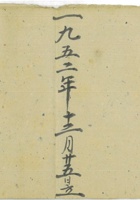 一九五二年十二月廿五日立